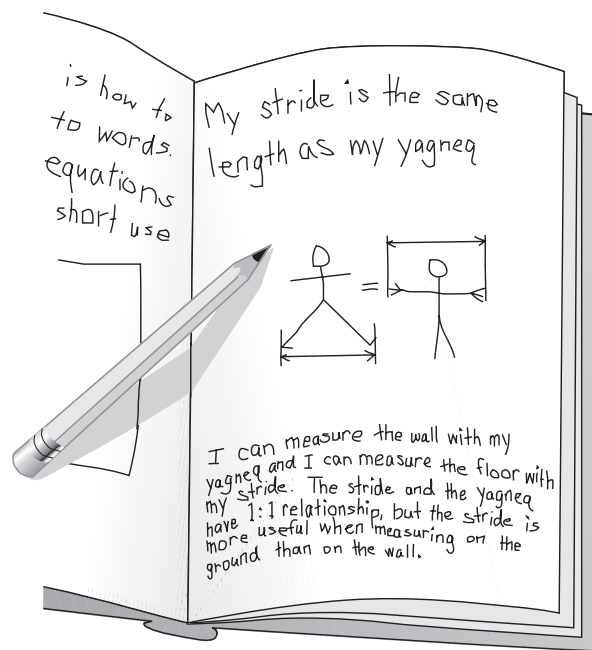 is how to
to words.
equations
short use
My stride is the same
length as my yagneq
=
I can measure the wall with my
yagneq and I can measure the floor with
my stride. The stride and the yagneq
have 1:1 relationship, but the stride is
more useful when measuring on the
ground than on the wall.